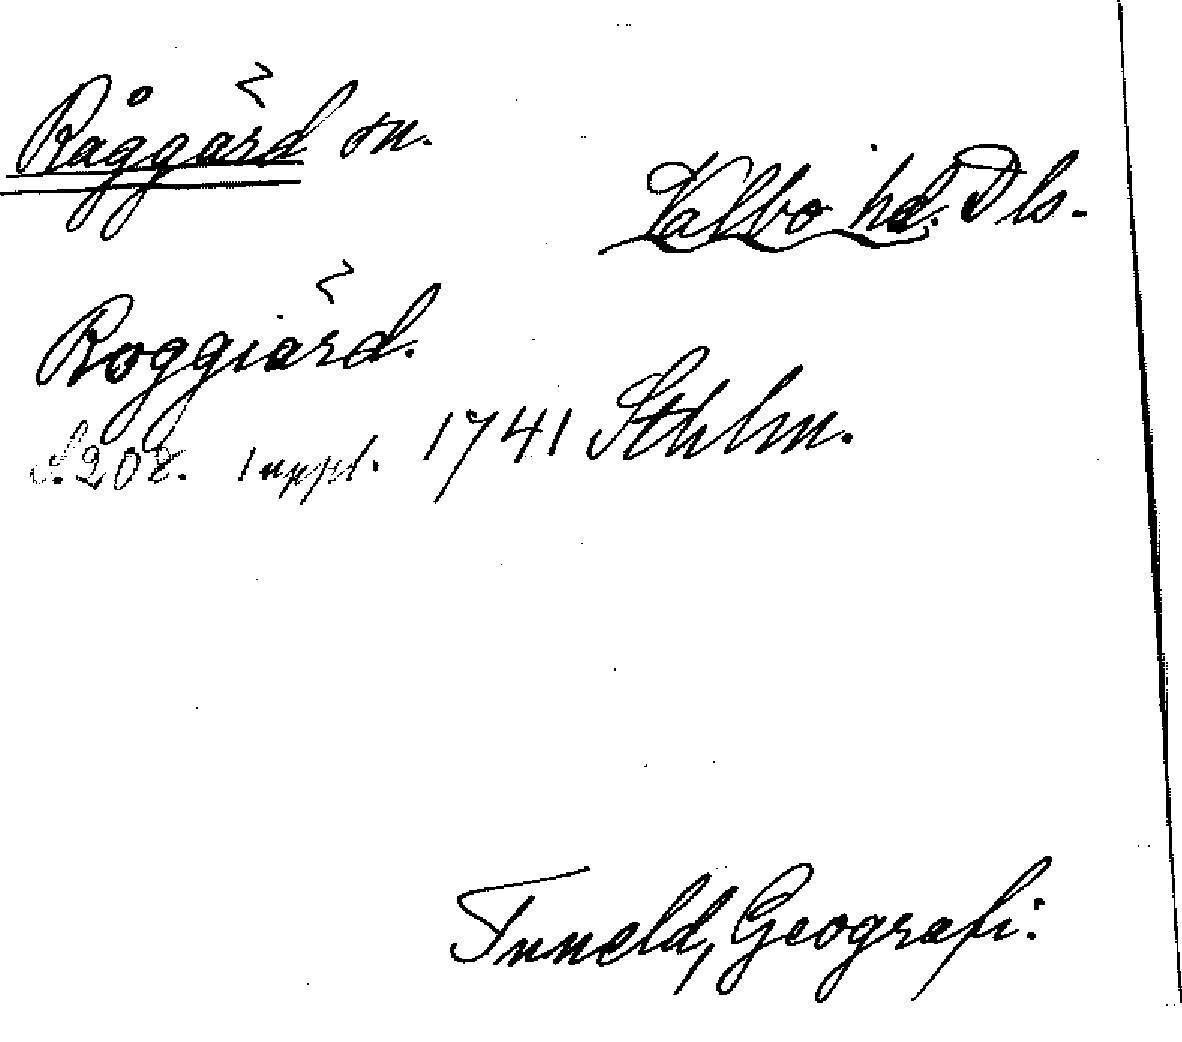 Råggärd sn.
Valbo hd. Dls.
Roggiärd.
S. 208. 1 uppl. 1741 Sthlm.
Tuneld, Geografi.